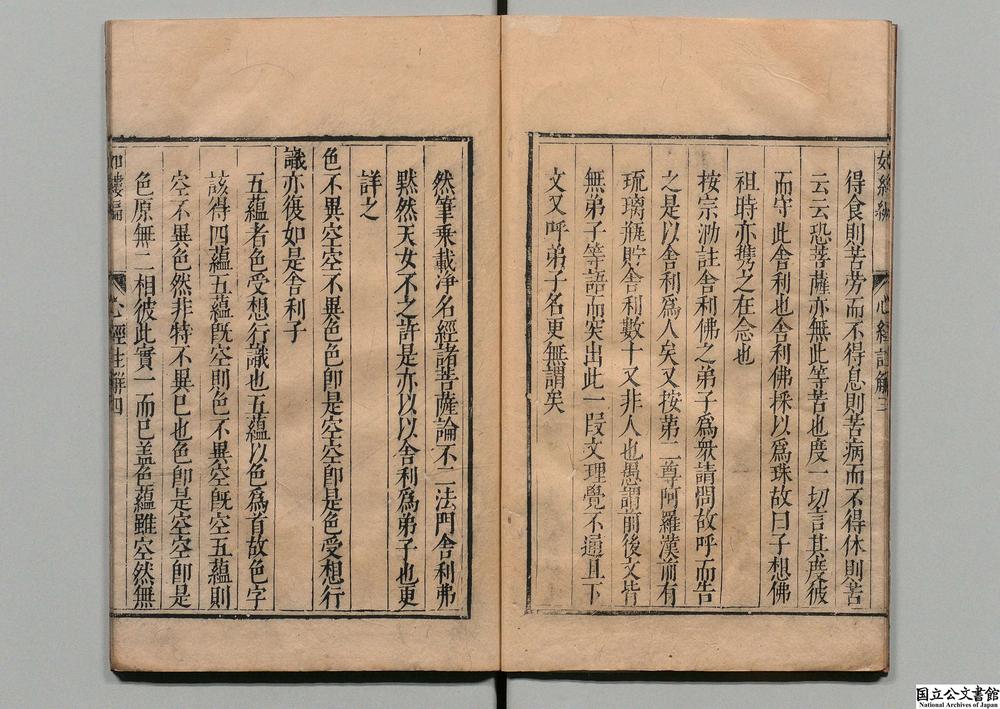 得食則苦勞而不得息則苦病而不得休則苦
云云恐菩薩亦無此等苦也度一切言其度彼
而守此舍利也舍利佛採以為珠故曰子想佛
祖時亦携之在念也
按宗泐註舍利佛之弟子為眾請問故呼而告
之是以舍利為人矣又按第二尊阿羅漢前有
琉璃瓶貯舍利數十又非人也愚謂前後文皆
無弟子等語而突出此一段文理覺不通且下
文又呼弟子名更無謂矣
心經註解三
然筆乘載淨名經諸菩薩論不二法門舍利弗
默然天女不之許是亦以以舍利為弟子也更
詳之
色不異空空不異色色卽是空空卽是色受想行
識亦復如是舍利子
五蘊者色受想行識也五蘊以色為首故色字
該得四蘊五蘊旣空則色不異空旣空五蘊則
空不異色然非特不異已也色卽是空空卽是
色原無二相彼此實一而已蓋色蘊雖空然無
心經註解四
国立公文書館
National Archives of Japan